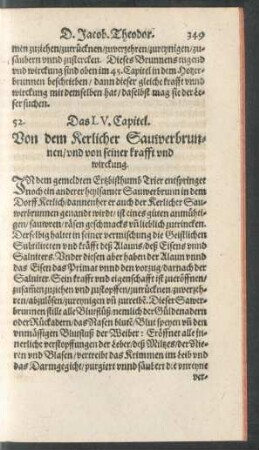 D. Jacob. Theodor. 349
men zuziehen/zutrücknen/zuverzehren/zureynigen/zu-
säubern vnnd zustercken. Dieses Brunnens tugend
vnd wirckung sind oben im 43. Capitel in dem Hotzer-
brunnen beschrieben / dann dieser gleiche krafft vnnd
wirckung mit demselben hat / daselbst mag sie der Le-
ser suchen.
52. Das LV. Capitel.
Von dem Kerlicher Sauwerbrun-
nen/vnd von seiner krafft vnd
wirckung.
IN dem gemeldten Ertzbisthumb Trier entspringet
noch ein anderer heylsamer Sauwerbrunn in dem
Dorff Kerlich/dannenher er auch der Kerlicher Sau-
werbrunnen genandt wird/ ist eines gůten anmůhti-
gen/ sauwren/ räsen geschmacks vñ lieblich zutrincken.
Derselbig halter in seiner vermischung die Geistlichen
Subtiliteten vnd kräfft deß Alauns/deß Eysens vnnd
Salniters/ Vnder diesen aber haben der Alaun vnnd
das Eisen das Primat vnnd den vorzug/ darnach der
Salniter. Sein krafft vnd eigenschafft ist zueröffnen/
zusamen zuziehen vnd zustopffen/zutrücknen/zuverzeh-
ren/abzulösen/zureynigen vñ zutreibē. Dieser Sawer-
brunnen stille alle Blutflüß/nemlich der Güldenadern
oder Rückadern/das Nasen blutē/Blut speyen vñ den
vnmässigen Blutfluß der Weiber: Eröffnet alle in-
nerliche verstopffungen der Leber/deß Miltzes/ der Nie-
ren vnd Blasen/ vertreibt das Krimmen im Leib vnd
das Darmgegicht/ purgiert vnnd säubert die vnreyne
ver-